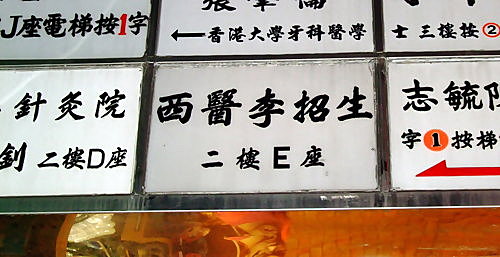 J座電梯按1字
←香港大學牙科醫學
士 三樓按②
針灸院
釗 二樓D座
西醫李招生
二樓E座
志毓
字1按梯